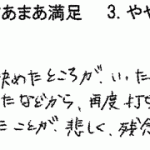 あまあ満足 3. やや
決めたところが、いった
たなどから、再度打
たことが悲しく、残念